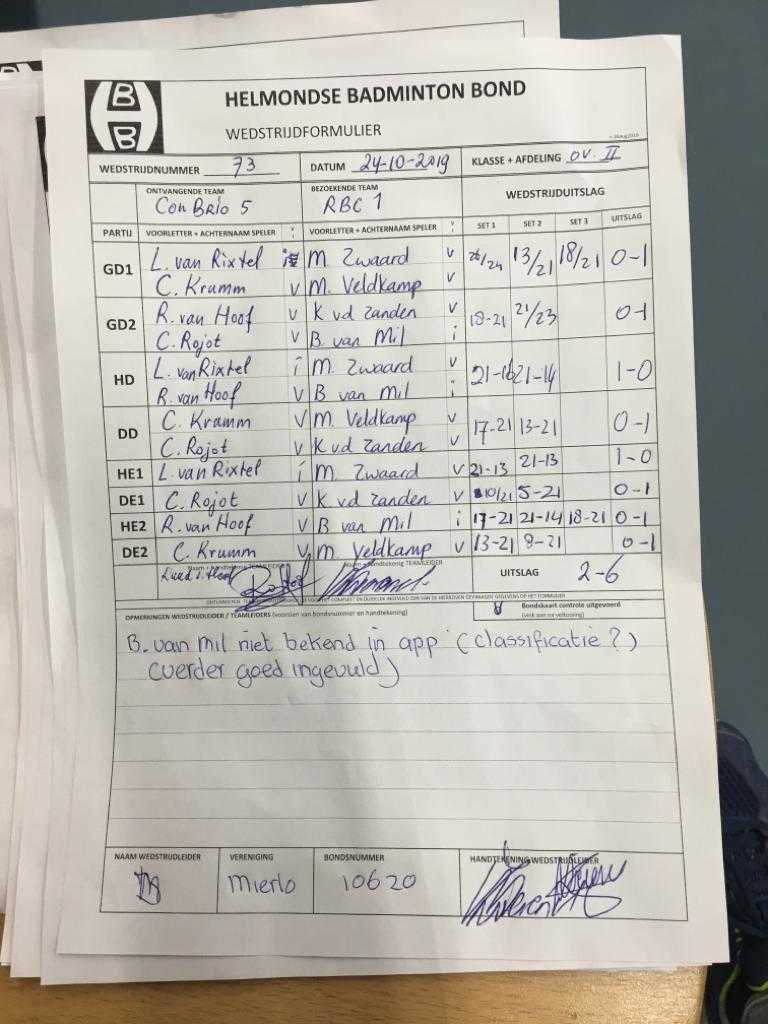 H B B
HELMONDSE BADMINTON BOND
WEDSTRIJDFORMULIER
WEDSTRIJDNUMMER 73 DATUM 24-10-2019 KLASSE + AFDELING OV. II
ONTVANGENDE TEAM BEZOEKENDE TEAM WEDSTRIJDUITSLAG
Con Brio 5 RBC 1
PARTIJ VOORLETTER + ACHTERNAAM SPELER v/i VOORLETTER + ACHTERNAAM SPELER v/i SET 1 SET 2 SET 3 UITSLAG
GD1 L. van Rixtel i M. Zwaard v 26/24 13/21 18/21 0-1
C. Kramm v M. Veldkamp v
GD2 R. van Hoof v K vd Zanden v 18-21 21/23 0-1
C. Rojot v B. van Mil i
HD L. van Rixtel i M. Zwaard v 21-16 21-14 1-0
R. van Hoof v B van Mil i
DD C. Kramm v M. Veldkamp v 17-21 13-21 0-1
C. Rojot v K vd Zanden v
HE1 L. van Rixtel i M. Zwaard v 21-13 21-13 1-0
DE1 C. Rojot v K. vd Zanden v 10/21 5-21 0-1
HE2 R. van Hoof v B van Mil i 17-21 21-14 18-21 0-1
DE2 C. Kramm v M. Veldkamp v 13-21 8-21 0-1
Naam + handtekening TEAMLEIDER Naam + handtekening TEAMLEIDER UITSLAG 2-6
OPMERKINGEN WEDSTRIJDLEIDER / TEAMLEIDERS (voorzien van bondsnummer en handtekening) Bondskaart controle uitgevoerd
B. van Mil niet bekend in app (classificatie?)
(verder goed ingevuld)
NAAM WEDSTRIJDLEIDER VERENIGING BONDSNUMMER HANDTEKENING WEDSTRIJDLEIDER
Mierlo 10620